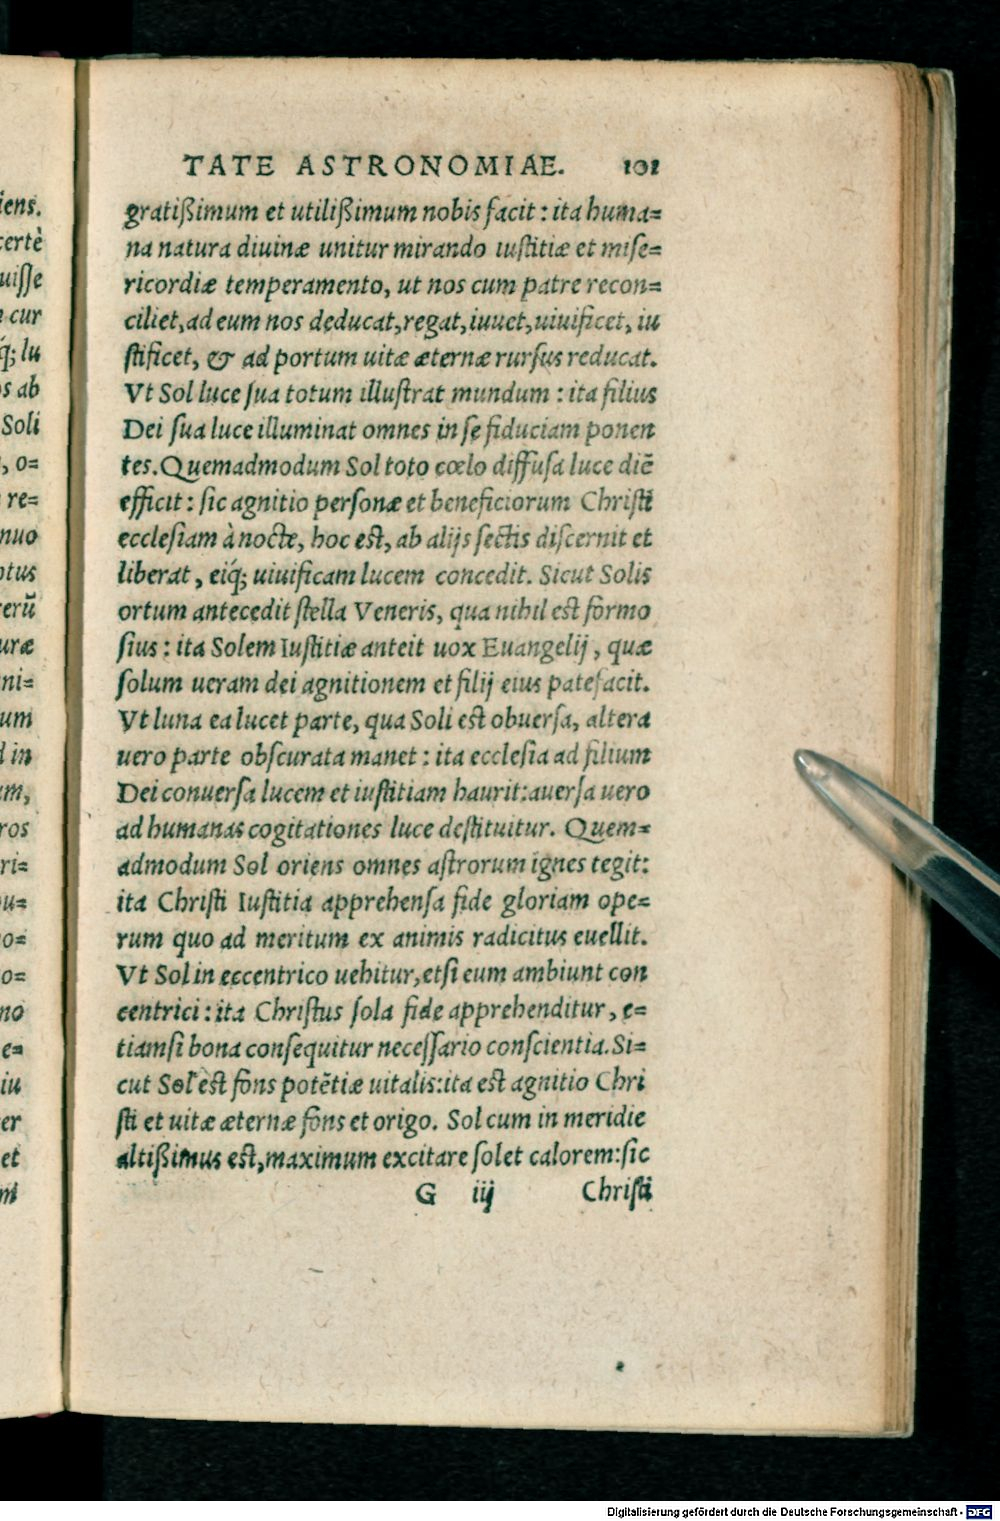 TATE ASTRONOMIAE. 101
gratißimum et utilißimum nobis facit : ita huma=
na natura diuinæ unitur mirando iustitiæ et mise=
ricordiæ temperamento, ut nos cum patre recon=
ciliet, ad eum nos deducat, regat, iuuet, uiuificet, iu
stificet, & ad portum uitæ æternæ rursus reducat.
Vt Sol luce sua totum illustrat mundum : ita filius
Dei sua luce illuminat omnes in se fiduciam ponen
tes. Quemadmodum Sol toto cœlo diffusa luce diē
efficit : sic agnitio personæ et beneficiorum Christi
ecclesiam à nocte, hoc est, ab alijs sectis discernit et
liberat, eiq́; uiuificam lucem concedit. Sicut Solis
ortum antecedit stella Veneris, qua nihil est formo
sius : ita Solem Iustitiæ anteit uox Euangelij, quæ
solum ueram dei agnitionem et filij eius patefacit.
Vt luna ea lucet parte, qua Soli est obuersa, altera
uero parte obscurata manet : ita ecclesia ad filium
Dei conuersa lucem et iustitiam haurit: auersa uero
ad humanas cogitationes luce destituitur. Quem=
admodum Sol oriens omnes astrorum ignes tegit:
ita Christi Iustitia apprehensa fide gloriam ope=
rum quo ad meritum ex animis radicitus euellit.
Vt Sol in eccentrico uehitur, etsi eum ambiunt con
centrici : ita Christus sola fide apprehenditur, e=
tiamsi bona consequitur necessario conscientia. Si=
cut Sol est fons potētiæ uitalis: ita est agnitio Chri
sti et uitæ æternæ fons et origo. Sol cum in meridie
altißimus est, maximum excitare solet calorem: sic
G iij Christi
iens.
certè
uisse
cur
q́; lu
os ab
Soli
, o=
re=
nuo
ptus
erū
uræ
ni=
um
d in
em,
ros
ri=
u=
o=
o=
no
e=
iu
er
et
Digitalisierung gefördert durch die Deutsche Forschungsgemeinschaft - DFG